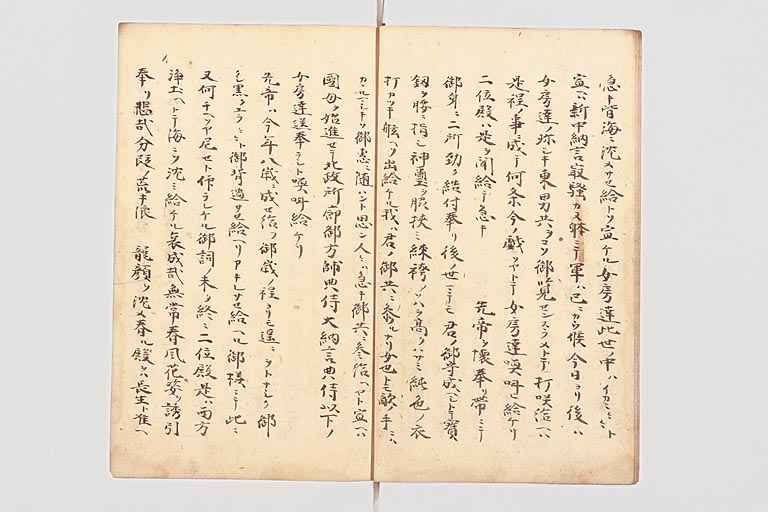 急キ皆海ニ沈メサセ給トソ宣ケル女房達此世ノ中ハイカニヽト
宣ハ新中納言最騒カヌ躰ニテ軍ハ已ニカウ候今日ヨリ後ハ
女房達ノ珎シキ東男共ヲコソ御覧センスラメトテ打咲給ヘハ
是程事ニ成テ何条今ノ戯ソヤトテ女房達喚叫ヒ給ケリ
二位殿ハ是ヲ聞給テ急キ 先帝ヲ懐奉リ帯ニテ
御身ニ二所勁ク結付奉リ後ノ世ニテモ君ノ御守成ヘシトテ寳
釼ヲ腰ニ指シ神璽ヲ脇挾ミ練袴ノソハヲ高ノハサミ純色ノ衣
打カツキ舷ヘソ出給ケル我ハ君ノ御共ニ参ルナリ女也トモ敵ノ手ニハ
カヽルマシトソ御恵ニ随ハント思ン人ハ急キ御共ニ参給ヘヤト宣ハ
國母ヲ始進セテ北政所廊御方帥典侍大納言典侍以下ノ
女房達送奉ラシト喚叫給ケリ
先帝ハ今年八歳ニ成セ給フ御歳ノ程ヨリモ遥ニヲトナシク御
シ黒クユラヽト御背過サセ給ヘリアキレサセ給ヘル御様ニテ此ニ
又何チヘソヤ尼セト仰ラレケル御詞ノ末ヲ終ニ二位殿是ハ西方
浄土ヘトテ海ニソ沈ミ給ケル哀成哉無常春風花姿ヲ誘引
奉リ悲哉分段ノ荒キ浪 龍顔ヲ沈メ奉ル殿ヲハ長生ト准ヘ